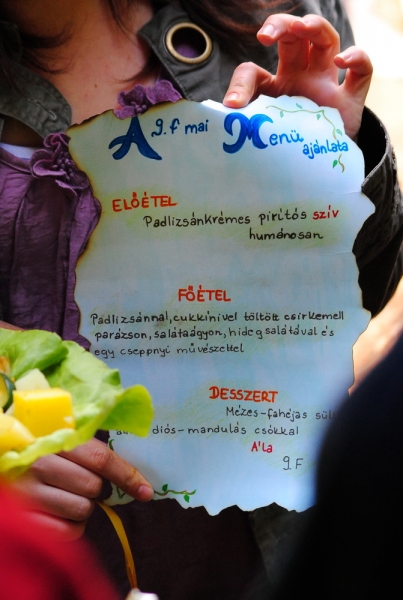 A 9.F mai Menü
ajánlata
ELŐÉTEL
Padlizsánkrémes pirítós szív
humánosan
FŐÉTEL
Padlizsánnal, cukkinivel töltött csirkemell
parázson, salátaágyon, hideg salátával és
egy cseppnyi művészettel
DESSZERT
Mézes-fahéjas
diós-mandulás csókkal
A'la
9.F